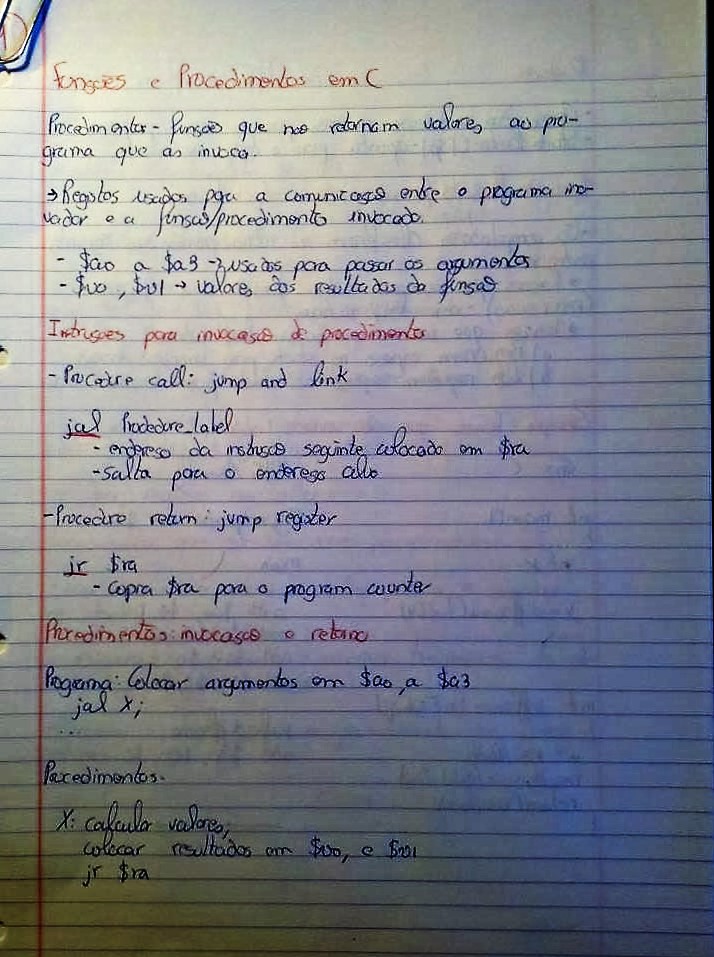 Funções e Procedimentos em C
Procedimentos - funções que nos retornam valores, ao pro-
grama que as invoca.
→ Registos usados para a comunicação entre o programa ino-
vador e a função/procedimento invocado.
- $a0 a $a3 → usados para passar os argumentos
- $v0, $v1 → valores dos resultados da função
Instruções para invocação de procedimento
- Procedure call: jump and link
jal Procedure_label
- endereço da instrução seguinte colocado em $ra
- salta para o endereço alvo
- Procedure return: jump register
jr $ra
- Copia $ra para o program counter
Procedimentos: invocação e retorno
Programa: Colocar argumentos em $a0, a $a3
jal X;
...
Procedimentos.
X: calcular valores;
colocar resultados em $v0, e $v1
jr $ra